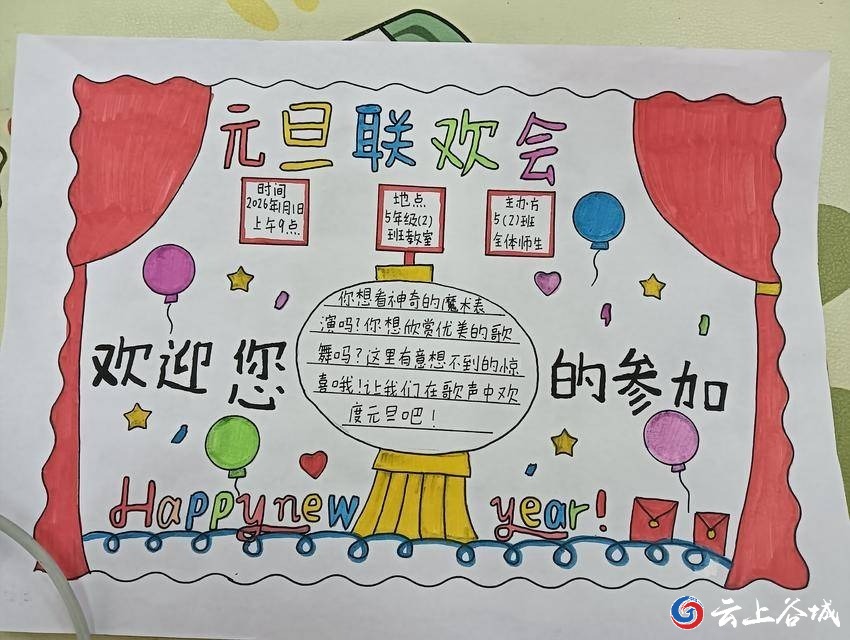 元旦联欢会
时间
2026年1月1日
上午9点
地点
5年级(2)
班教室
主办方
5(2)班
全体师生
欢迎您
你想看神奇的魔术表
演吗?你想欣赏优美的歌
舞吗?这里有意想不到的惊
喜哦!让我们在歌声中欢
度元旦吧!
的参加
Happy new year!
云上谷城